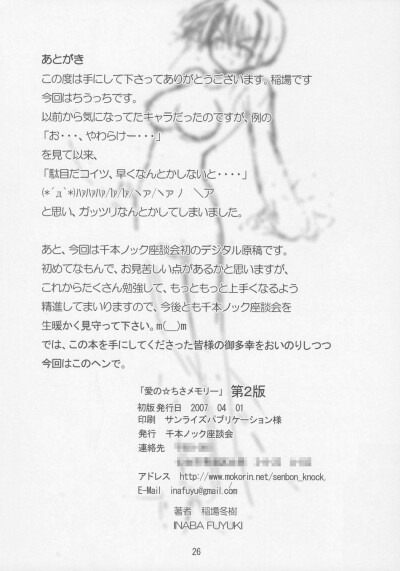 あとがき
この度は手にして下さってありがとうございます。稲場です
今回はちうっちです。
以前から気になってたキャラだったのですが、例の
「お・・・、やわらけー・・・」
を見て以来、
「駄目だコイツ、早くなんとかしないと・・・・」
(*´д`*)ﾊｧﾊｧﾊｧ/ﾊｧ/ﾊｧ/ヽァ/ヽァ ﾉ ＼ア
と思い、ガッツリなんとかしてしまいました。
あと、今回は千本ノック座談会初のデジタル原稿です。
初めてなもんで、お見苦しい点があるかと思いますが、
これからたくさん勉強して、もっともっと上手くなるよう
精進してまいりますので、今後とも千本ノック座談会を
生暖かく見守って下さい。m(__)m
では、この本を手にしてくださった皆様の御多幸をおいのりしつつ
今回はこのヘンで。
「愛の☆ちさメモリー」 第2版
初版発行日 2007 04 01
印刷 サンライズパブリケーション様
発行 千本ノック座談会
連絡先
アドレス http://www.mokorin.net/senbon_knock,
E-Mail inafuyu@gmail.com
著者 稲場冬樹
INABA FUYUKI
26